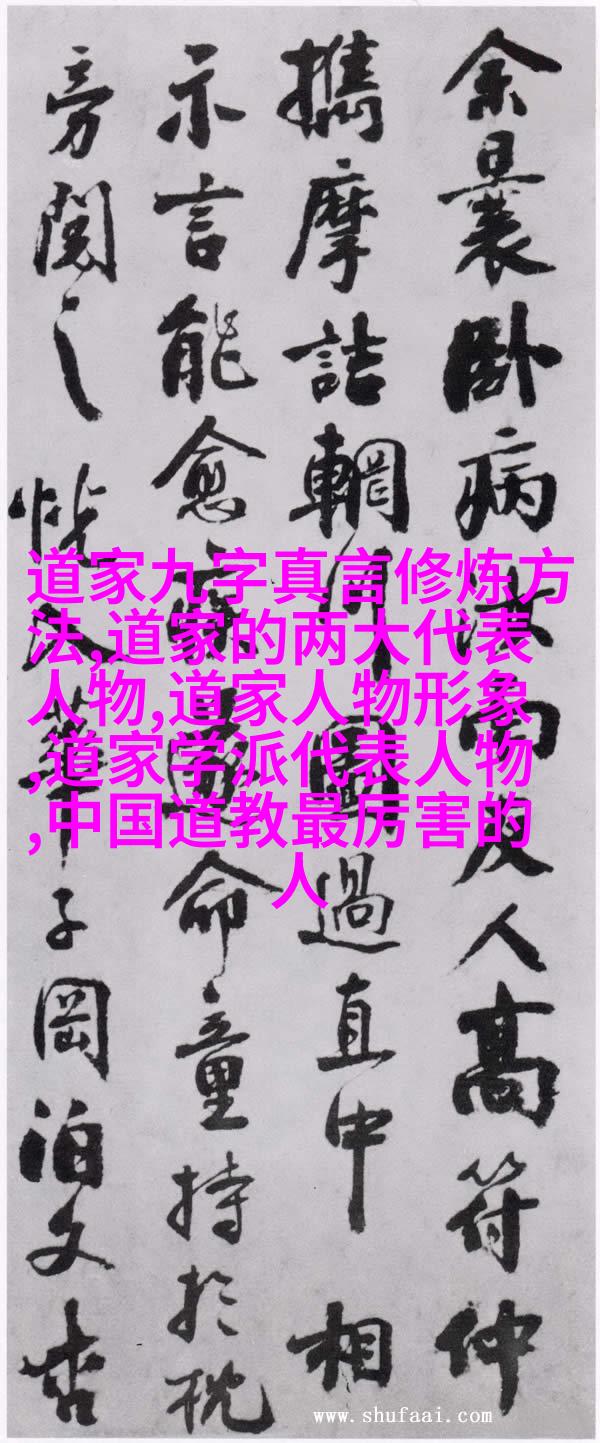 余曩卧病汝南友人高符仲
攜摩詰輞川圖過直中相
示言能愈疾遂命童持於枕
旁閱之恍入華子岡泊文杏
道家九字真言修炼方
法,道家的两大代表
人物,道家人物形象
,道家学派代表人物
,中国道教最厉害的
人
www.shufaai.com